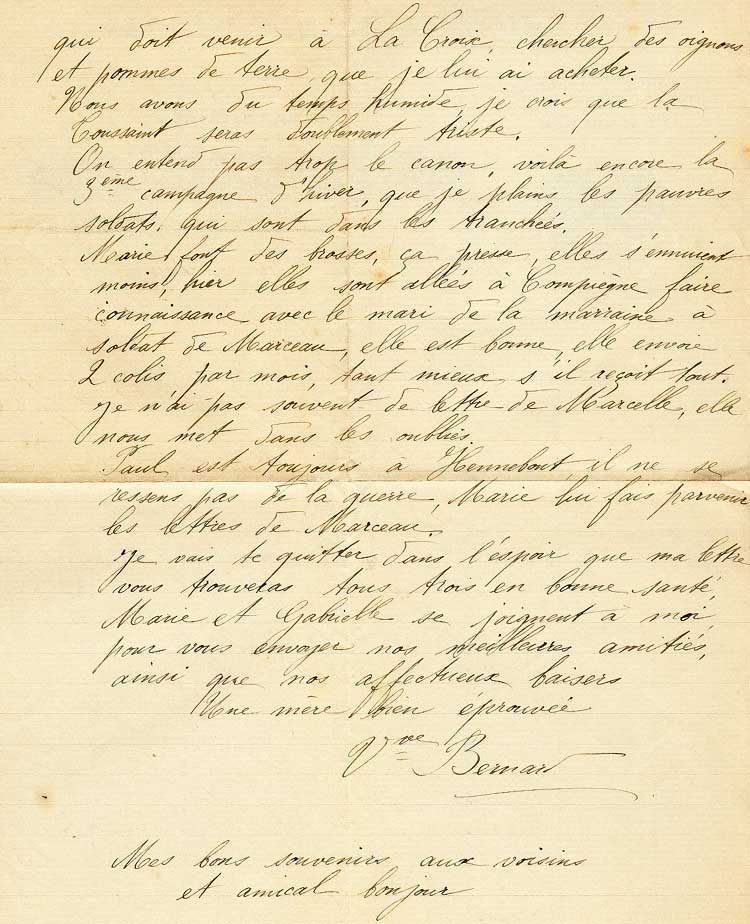 qui doit venir à La Croix, chercher des oignons
et pommes de terre, que je lui ai acheter.
Nous avons du temps humide, je crois que la
Toussaint seras doublement triste.
On entend pas trop le canon, voilà encore la
3ème campagne d'hiver, que je plains les pauvres
soldats, qui sont dans les tranchées.
Marie font des brosses, ça presse, elles s'ennuient
moins, hier elles sont allées à Compiègne faire
connaissance avec le mari de la marraine à
soldat de Marceau, elle est bonne, elle envoie
2 colis par mois, tant mieux s'il reçoit tout.
Je n'ai pas souvent de lettre de Marcelle, elle
nous met dans les oublies.
Paul est toujours à Hennebont, il ne se
ressens pas de la guerre, Marie lui fais parvenir
les lettres de Marceau.
Je vais te quitter dans l'éspoir que ma lettre
vous trouveras tous trois en bonne santé,
Marie et Gabrielle se joignent à moi,
pour vous envoyer nos meilleures amitiés,
ainsi que nos affectueux baisers
Une mère bien éprouvée
Vve Bernard
Mes bons souvenirs aux voisins
et amical bonjour